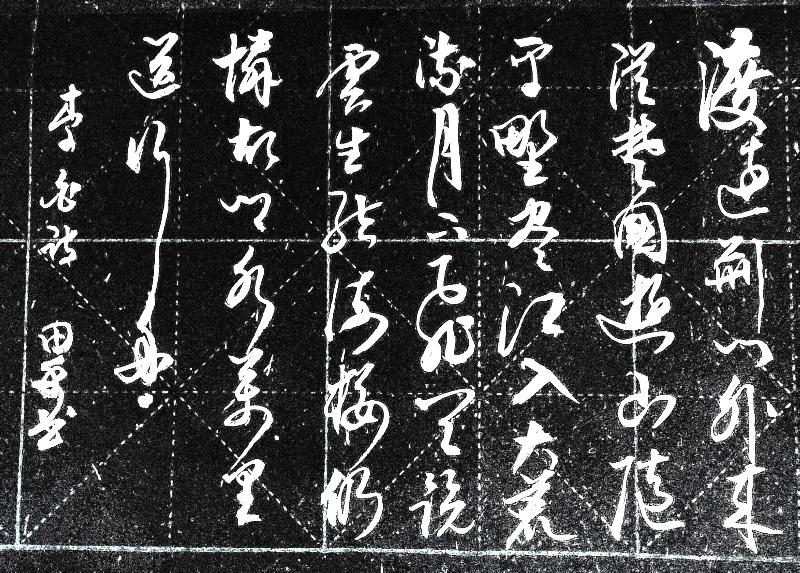 渡遠荊門外來
從楚國遊山隨
平野尽江入大荒
流月下飛天鏡
雲生結海樓仍
憐故鄉水萬里
送行舟
李白詩 田书